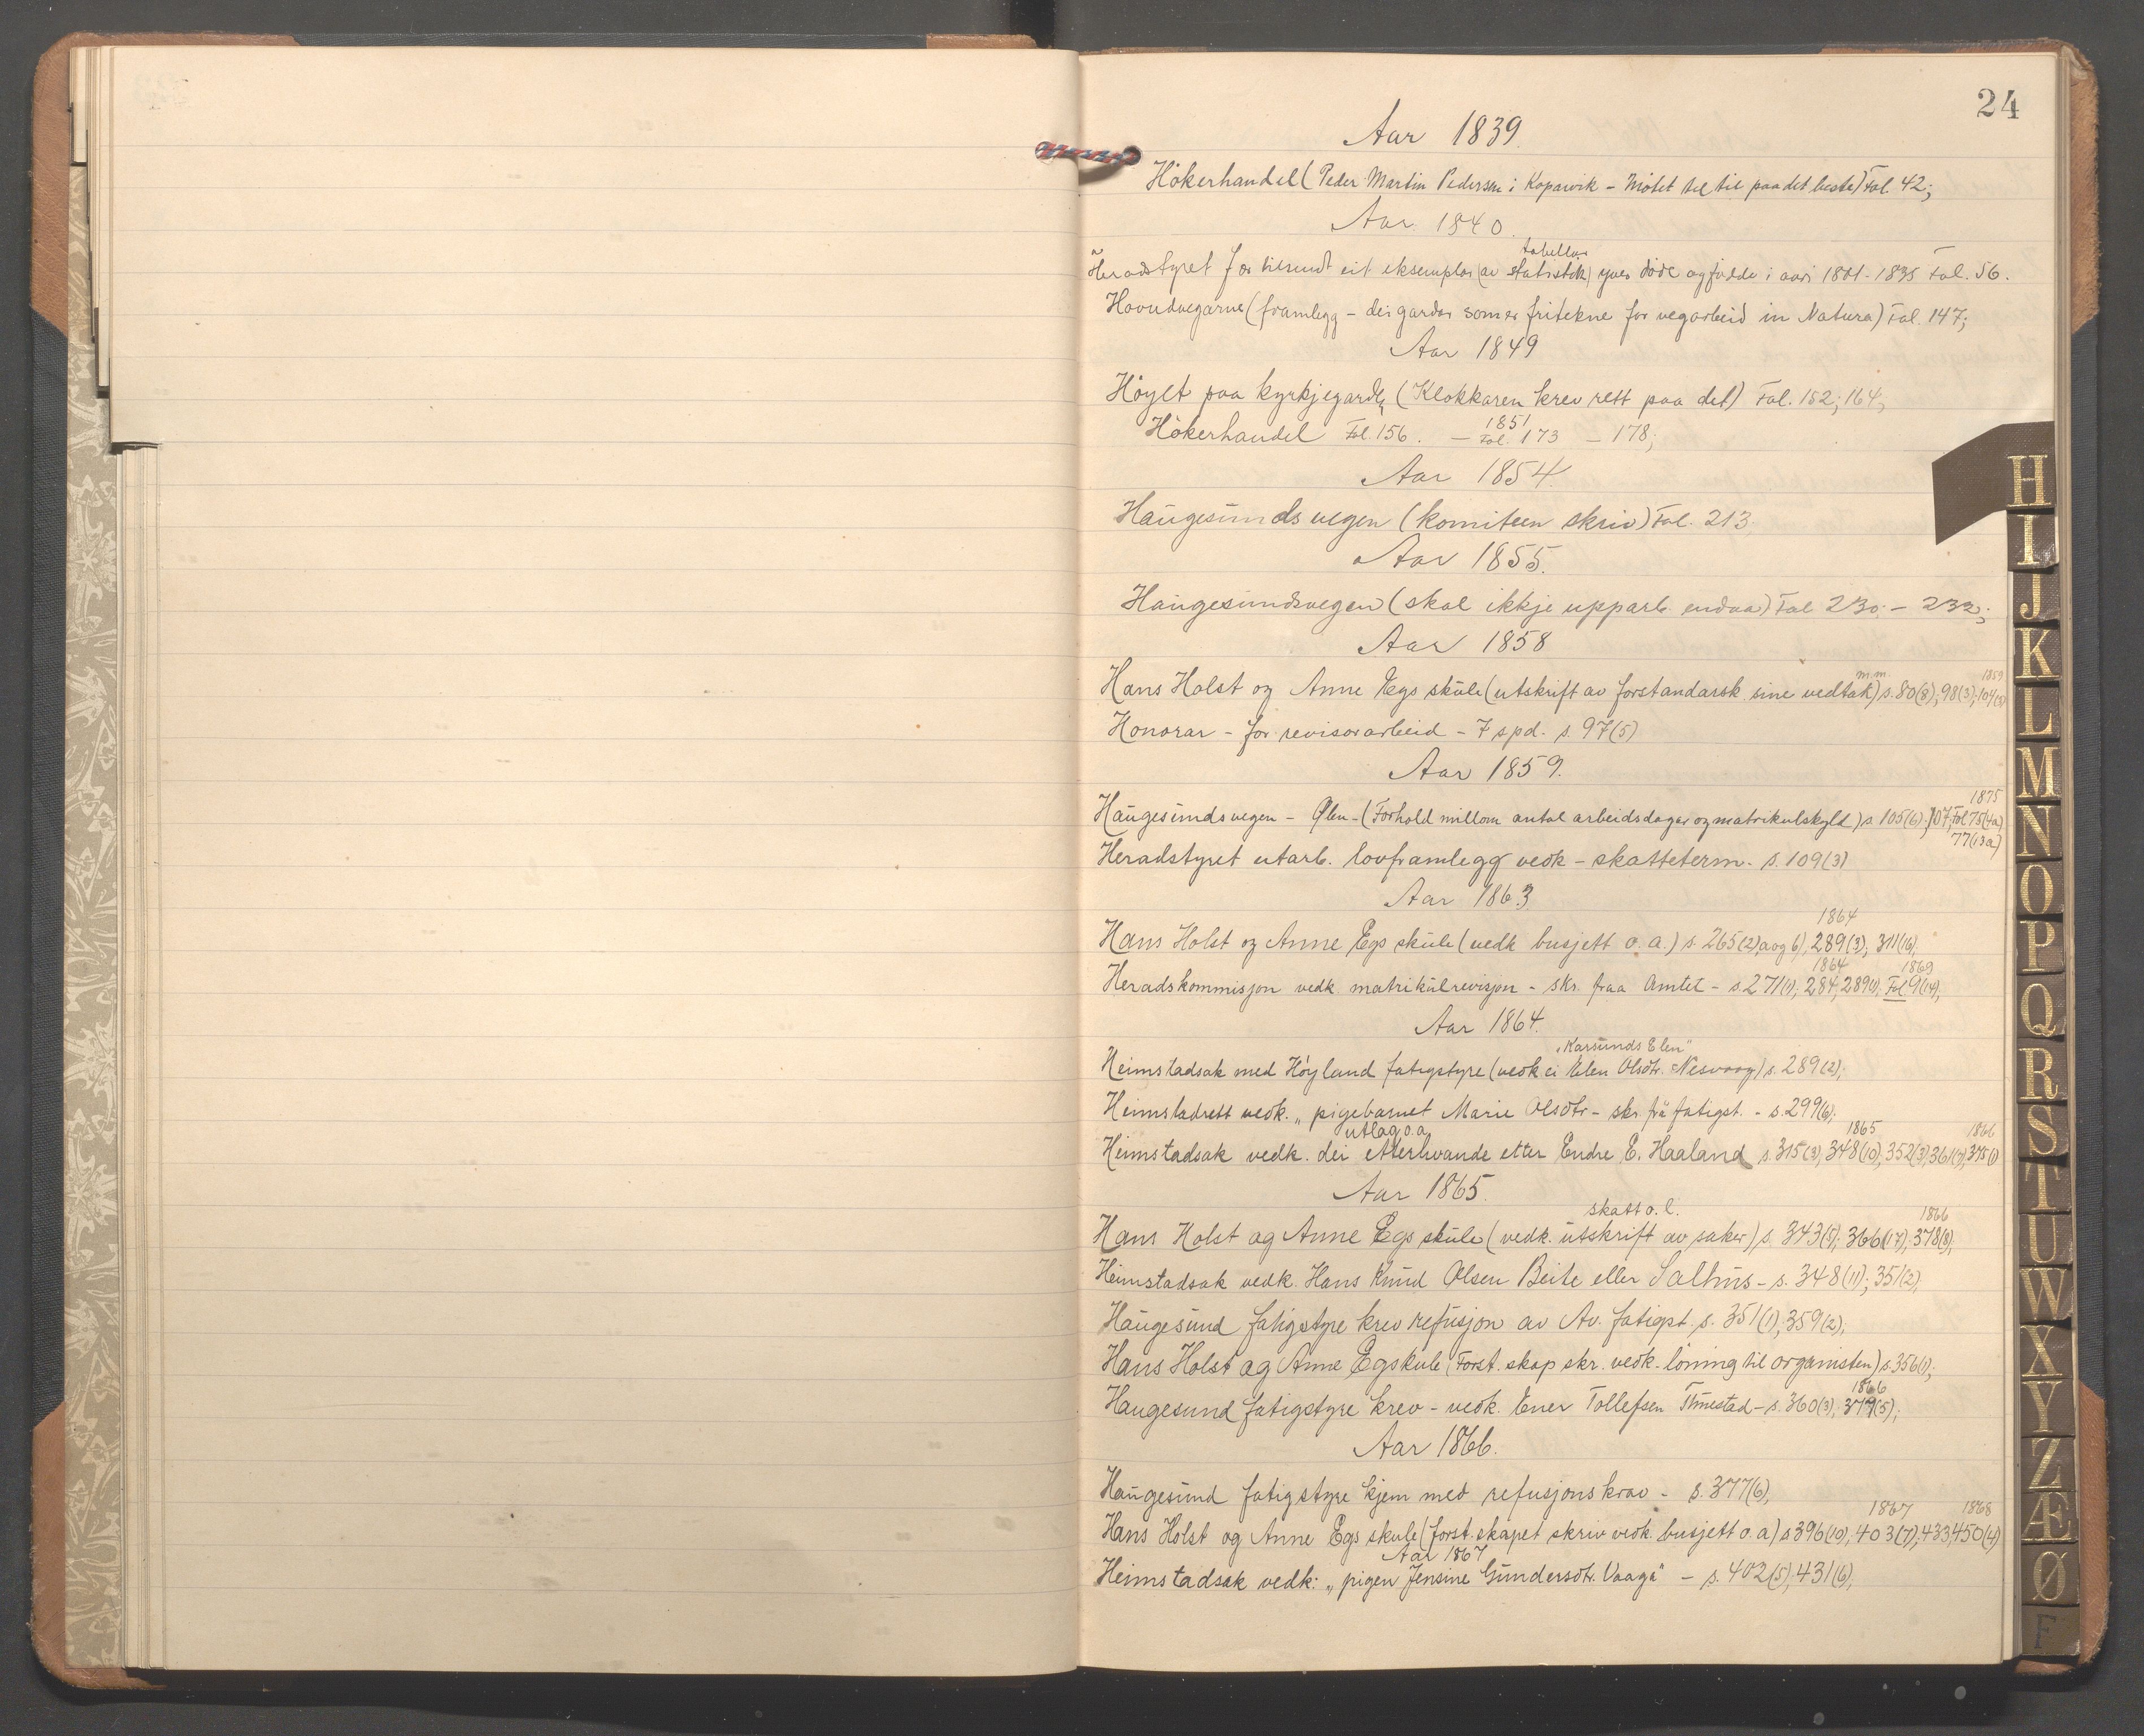 24
Aar 1839.
Hökerhandel (Peder Martin Pedersen i Kopawik - Mötet til paa det beste) Fol. 42;
Aar 1840.
tabellar
Heradstyret fær tilsendt eit eksemplar (av statistik) yver döde og fødde i aari 1801-1835 Fol. 56.
Hovudvegarne (framlegg - dei gardar som er fritekne for vegarbeid in Natura) Fol. 147;
Aar 1849
Höyet paa kyrkjegarde (Klokkaren krev rett paa det) Fol. 152; 164;
1851
Hökerhandel Fol. 156. - Fol. 173 - 178;
Aar 1854.
Haugesundsvegen (komiteen skriv) Fol. 213.
Aar 1855.
Haugesundsvegen (skal ikkje upparb. endaa) Fol 230; - 232;
Aar 1858
m.m. 1859
Hans Holst og Anne Egs skule (utskrift av forstandarsk. sine vedtak) s. 80(8); 98(3); 104
Honorar - for revisorarbeid - 7 spd. s. 97(5)
Aar 1859.
1875
Haugesundsvegen - Ølen - (Forhold millom antal arbeidsdagar og matrikulskyld) s 105(6); 107; Fol 75(4a)
77(13a)
Heradstyret utarb. lovframlegg vedk - skatteterm. s. 109(3)
Aar 1863
1864
Hans Holst og Anne Egs skule (vedk busjett o. a.) s. 265(2)a og 6); 289(3); 311(16);
1864 1869
Heradskommisjon vedk. matrikulrevisjon - skr. fraa Amtet - s. 271(1); 284; 289(1); Fol 9(14);
Aar 1864.
"Karsunds Elen"
Heimstadsak med Höyland fatigstyre (vedk ei Elen Olsdtr. Nesvaag) s. 289(2);
Heimstadrett vedk. "pigebarnet Marie Olsdtr - skr. frå fatigst. - s. 299(6);
utlag o.a. 1865 1866
Heimstadsak vedk. dei etterlivande etter Endre E. Haaland s. 315(3); 348(10); 352(3); 361(7); 375(1)
Aar 1865.
skatt o. l. 1866
Hans Holst og Anne Egs skule (vedk. utskrift av saker) s. 343(5); 366(17); 378(8);
Heimstadsak vedk. Hans Knud Olsen Beite eller Salhus - s. 348(11); 351(2);
Haugesund fatigstyre krev refusjon av Av. fatigst. s. 351(1); 359(2);
Hans Holst og Anne Egskule (Forst. skap skr. vedk. löning til organisten) s. 356(1);
1866
Haugesund fatigstyre krev - vedk. Ener Tollefsen Timestad - s. 360(3); 379(5);
Aar 1866.
Haugesund fatigstyre kjem med refusjonskrav - s. 377(6);
1867 1868
Hans Holst og Anne Egs skule (forst. skapet skriv vedk. busjett o. a) s 396(10); 403(7); 433; 450(4)
Aar 1867
Heimstadsak vedk: "pigen Jensine Gundersdtr. Vaaga" - s. 402(5); 431(6);
H
I
J
K
L
M
N
O
P
Q
R
S
T
U
W
X
Y
Z
Æ
Ø
F